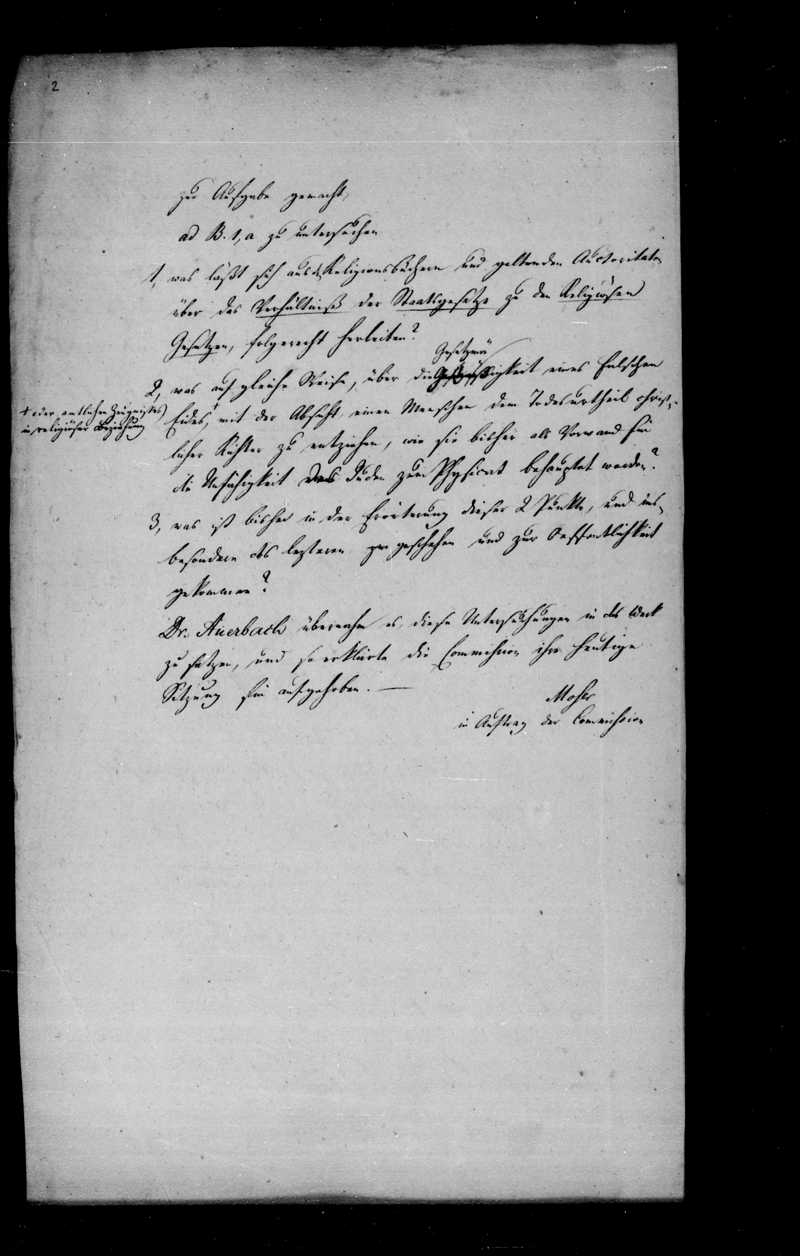 2
zur Aufgabe gemacht,
ad B. 1, a zu untersuchen
1, was läßt sich aus d. Religionsbüchern und geltenden Autoritäten
über das Verhältniß der Staatsgesetze zu den Religiösen
Gesetzen, folgerecht herleiten?
Gesetzmä
2, was auf gleiche Weise, über die ßigkeit eines falschen
+ oder amtlichen Zeugnisses)
in religiöser Beziehung
Eides, + mit der Absicht einen Menschen dem Todesurtheil christ-
licher Richter zu entziehen, wie sie bisher als Vorwand für
die Unfähigkeit der Juden zum Physicat behauptet worden?
3, was ist bisher in der Erörterung dieser 2 Punkte, und ins-
besondere des lezteren geschehen und zur Oeffentlichkeit
gekommen?
Dr. Auerbach übernahm es, diese Untersuchungen in das Werk
zu setzen, und so erklärte die Commission ihre heutige
Sitzung für aufgehoben. —
Moser
im Auftrag der Commission